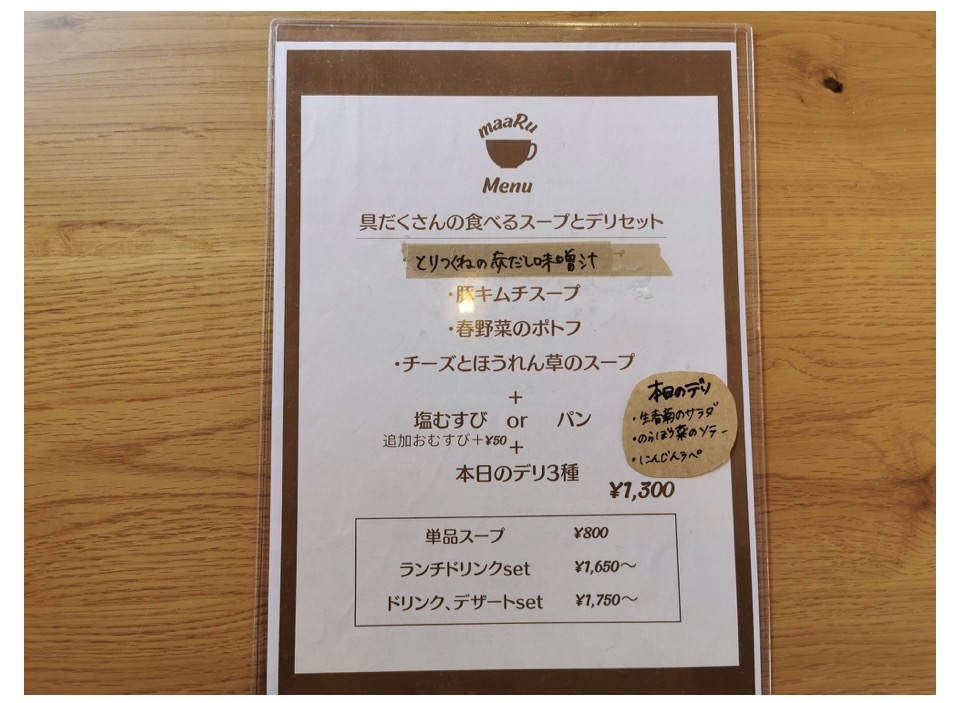 maaRu
Menu
具だくさんの食べるスープとデリセット
とりつくねの赤だし味噌汁
・豚キムチスープ
・春野菜のポトフ
・チーズとほうれん草のスープ
+
塩むすび or パン
追加おむすび+¥50
+
本日のデリ3種
¥1,300
本日のデリ
・生春菊のサラダ
・のらぼう菜のソテー
・にんじんラペ
単品スープ ¥800
ランチドリンクset ¥1,650〜
ドリンク、デザートset ¥1,750〜